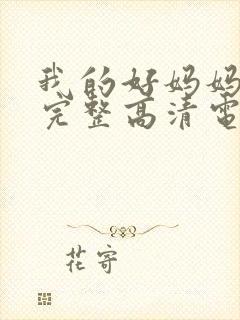 我的好妈妈
完整高清电
花寄